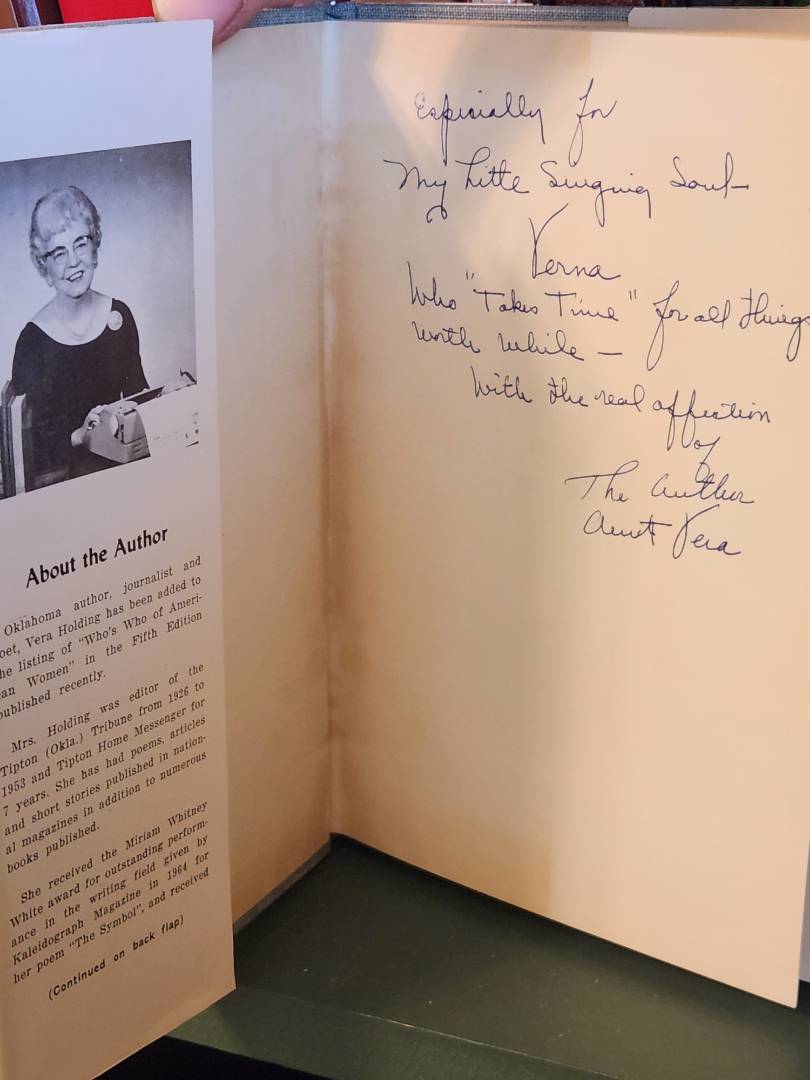 About the Author
Oklahoma author, journalist and
oet, Vera Holding has been added to
he listing of "Who's Who of Ameri-
an Women" in the Fifth Edition
published recently.
Mrs. Holding was editor of the
Tipton (Okla.) Tribune from 1926 to
1953 and Tipton Home Messenger for
7 years. She has had poems, articles
and short stories published in nation-
al magazines in addition to numerous
books published.
She received the Miriam Whitney
White award for outstanding perform-
ance in the writing field given by
Kaleidograph Magazine in 1964 for
her poem "The Symbol", and received
(Continued on back flap)
Especially for
My Little Singing Soul-
Verna
Who "Takes Time" for all things
worth while -
With the real affection
of
The Author
Aunt Vera